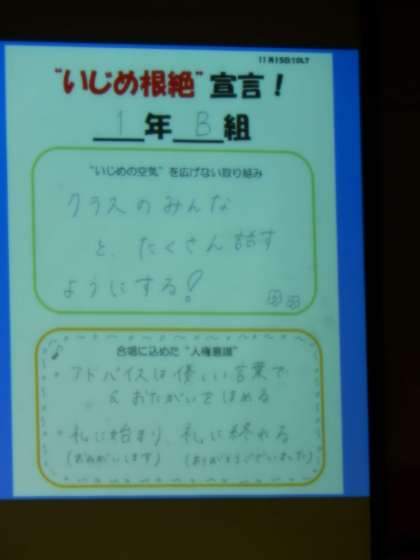 11月15日(1)LT
"いじめ根絶"宣言!
1年B組
"いじめの空気"を広げない取り組み
クラスのみんな
と、たくさん話す
ようにする!
合唱に込めた"人権意識"
・アドバイスは優しい言葉で
& おたがいをほめる
・礼に始まり、礼に終わる
(おねがいします) (ありがとうございました)